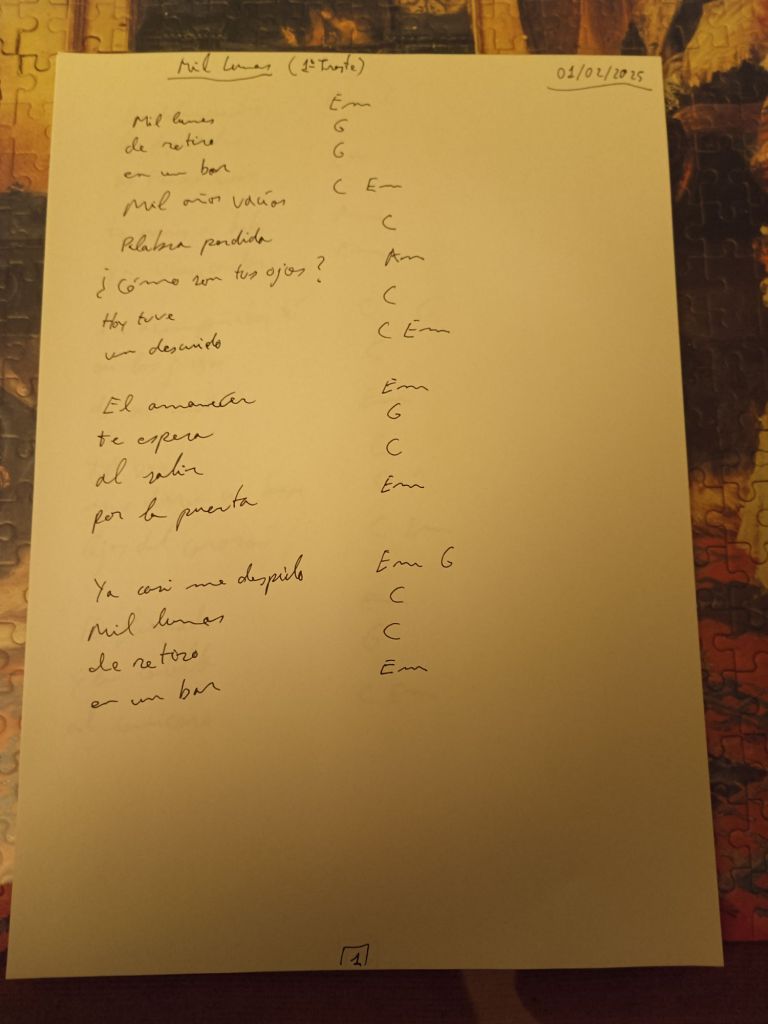 Mil lunas (1º Traste) 01/02/2025
Mil lunas Em
de retiro G
en un bar G
Mil años vacíos C Em
Palabra perdida C
¿Cómo son tus ojos? Am
Hoy tuve C
un descuido C Em
El amanecer Em
te espera G
al salir C
por la puerta Em
Ya casi me despido Em G
Mil lunas C
de retiro C
en un bar Em
1